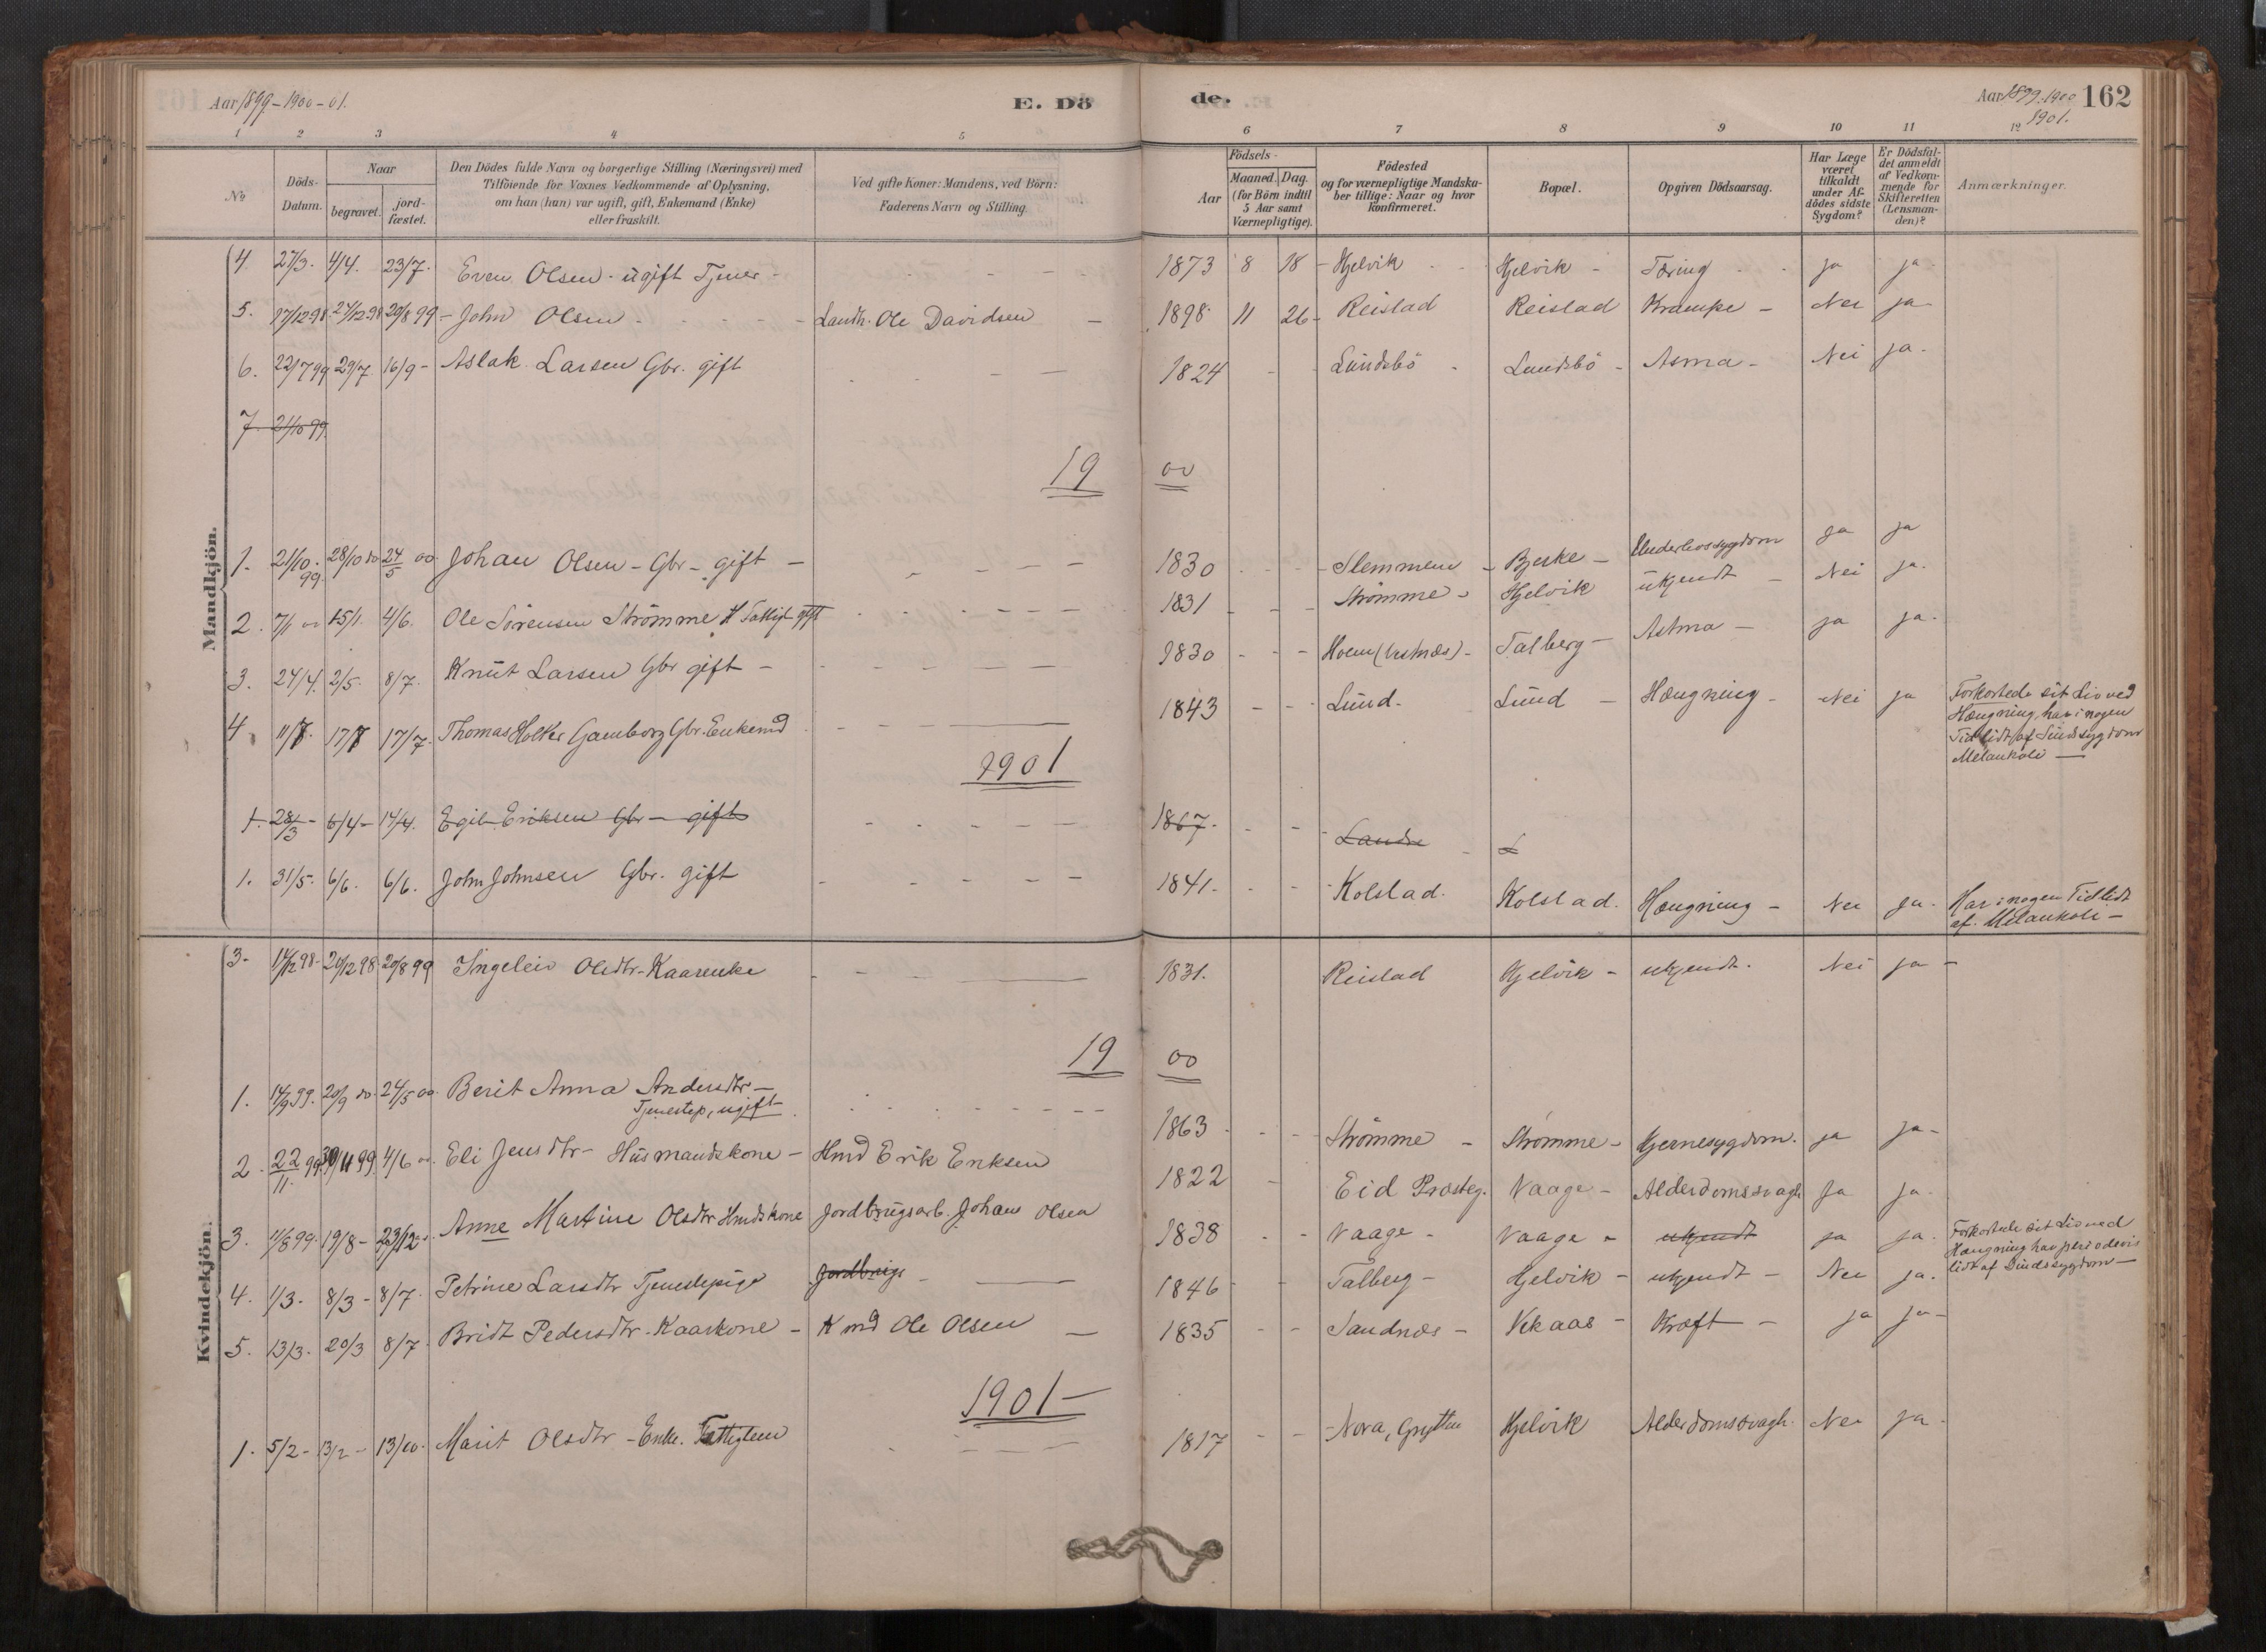 Aar 1899-1900-01. E. Döde. Aar 1899-1900 162
1901.
1 2 3 4 5 6 7 8 9 10 11 12
No. Döds-Datum. Naar begravet. jordfæstet. Den Dödes fulde Navn og borgerlige Stilling (Næringsvei) med Tilföiende for Voxnes Vedkommende af Oplysning, om han (hun) var ugift, gift, Enkemand (Enke) eller fraskilt. Ved gifte Koner: Mandens, ved Börn: Faderens Navn og Stilling. Födsels- Aar Maaned. Dag. (for Börn indtil 5 Aar samt Værnepligtige). Födested og for værnepligtige Mandskaber tillige: Naar og hvor konfirmeret. Bopæl. Opgiven Dödsaarsag. Har Læge været tilkaldt under Afdödes sidste Sygdom? Er Dödsfaldet anmeldt af Vedkommende for Skifteretten (Lensmanden)? Anmærkninger.
Mandkjön.
4. 27/3. 4/4. 23/7. Even Olsen - ugift Tjener - 1873 8 18 Hjelvik Hjelvik - Tæring ja ja
5. 17/12 98. 27/12 98 20/8 99 - John Olsen - Landh. Ole Davidsen - 1898 11 26 - Reistad Reistad Krampe - Nei ja
6. 22/7 99 29/7 16/9 - Aslak Larsen Gbr. gift 1824 Lundsbö Lundsbö - Asma - Nei ja
7. 21/10 99.
1900
1. 21/10 99. 28/10 do 24/5 00 Johan Olsen - Gbr - gift - 1830 Slemmem - Bjerke - Underlivssygdom ja ja
2. 7/1 00 15/1. 4/6. Ole Sörensen Strömme Fattigl gift 1831 Strömme - Hjelvik ukjendt - Nei ja.
3. 24/4. 2/5. 8/7. Knut Larsen Gbr gift - 1830 Hoem (Vestnæs) - Talberg - Astma - ja ja.
4. 11/7. 17/7 17/7. Thomas Holter Gamborg Gbr. Enkemd 1843 Lund. Lund - Hængning - Nei ja Forkortede sit Liv ved
Hængning, har i nogen
Tid lidt af Sindssygdom
Melankoli -
1901
1. 28/3 - 6/4 - 14/4. Egil Eriksen Gbr - gift 1867.
1. 31/5. 6/6. 6/6. John Johnsen Gbr. gift 1841. Kolstad. Kolstad. Hængning - Nei ja. Har i nogen Tid lidt
af Melankoli -
Kvindekjön.
3. 14/12 98. 20/12 98 20/8 99 Ingeleiv Olsdtr - Kaarenke 1831. Reistad Hjelvik - ukjendt. Nei ja -
1900
1. 14/9 99. 20/9 do. 24/5 00. Berit Anna Andersdtr -
Tjenestep, ugift. 1863 Strömme - Strömme - Hjernesygdom. ja ja -
2. 22/11 99 30/11 99 4/6 00. Eli Jensdtr - Husmandskone - Hmd Erik Eriksen 1822 Eid Præsteg. Vaage - Alderdomssvagh ja ja
3. 11/8 99. 19/8 - 23/12 Anne Martine Olsdtr Hmdskone Jordbrugsarb. Johan Olsen 1838 Vaage - Vaage - ukjendt ja ja. Forkortede sit Liv ved
Hængning har periodevis
lidt af Sindssygdom -
4. 1/3. 8/3 - 8/7. Petrine Larsdtr Tjenestepige Jordbrugs 1846 Talberg - Hjelvik - ukjendt - Nei ja.
5. 13/3. 20/3 8/7. Bridt Pedersdtr. Kaarkone - Kmd Ole Olsen - 1835 Sandnæs - Vekaas - Kræft - ja ja -
1901 -
1. 5/2 - 13/2 - 13/10. Marit Olsdtr - Enke. Fattiglem 1817 Nora, Grytten Hjelvik Alderdomssvagh. Nei ja